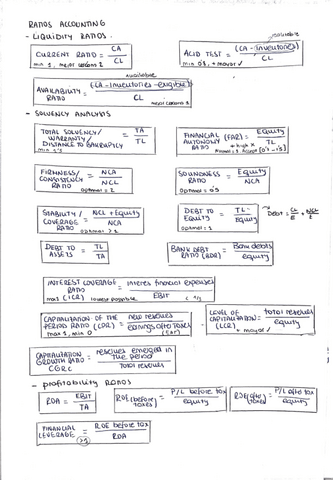 RATIOS ACCOUNTING
- LIQUIDITY RATIOS.
CURRENT RATIO = CA / CL
min 1, mejor cercano 2
ACID TEST = (CA - Inventories) / CL
min 0'5, + mayor ✓
AVAILABILITY RATIO = (CA - Inventories - eligible) / CL
available
mejor cercano 1
- SOLVENCY ANALYSIS
TOTAL SOLVENCY / WARRANTY / DISTANCE TO BANKRUPTCY = TA / TL
FINANCIAL AUTONOMY RATIO (FAR) = Equity / TL
+ high
FIRMNESS / CONSISTENCY RATIO = NCA / NCL
optimal = 2
SOUNDNESS RATIO = Equity / NCA
optimal = 0'5
STABILITY / COVERAGE RATIO = NCL + Equity / NCA
optimal > 1
DEBT TO EQUITY = TL / Equity
optimal = 1
Debt = CL / E + NCL / E
DEBT TO ASSETS = TL / TA
BANK DEBT RATIO (BDR) = Bank debts / equity
INTEREST COVERAGE RATIO (ICR) = interes financial expenses / EBIT
lowest possible
CAPITALIZATION OF THE PERIOD RATIO (CPR) = new reserves / earnings after taxes (EAT)
max 1, min 0
LEVEL OF CAPITALIZATION (LCR) = total reserves / equity
+ mayor ✓
CAPITALIZATION GROWTH RATIO = reserves emerged in the period / Total reserves
CGRC
- PROFITABILITY RATIOS
ROA = EBIT / TA
ROE (before taxes) = P/L before tax / equity
ROE (after taxes) = P/L after tax / equity
FINANCIAL LEVERAGE = ROE before tax / ROA